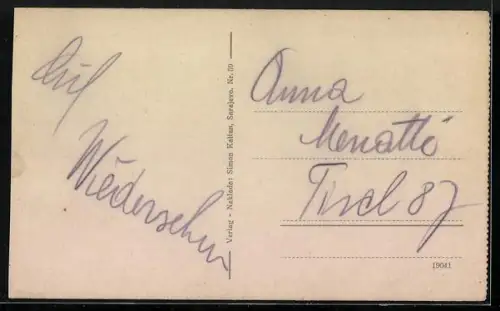 Auf
Wiedersehen
Verlag - Naklada: Simon Kattan, Sarajevo. Nr. 30
Anna
Menattó
87
19041